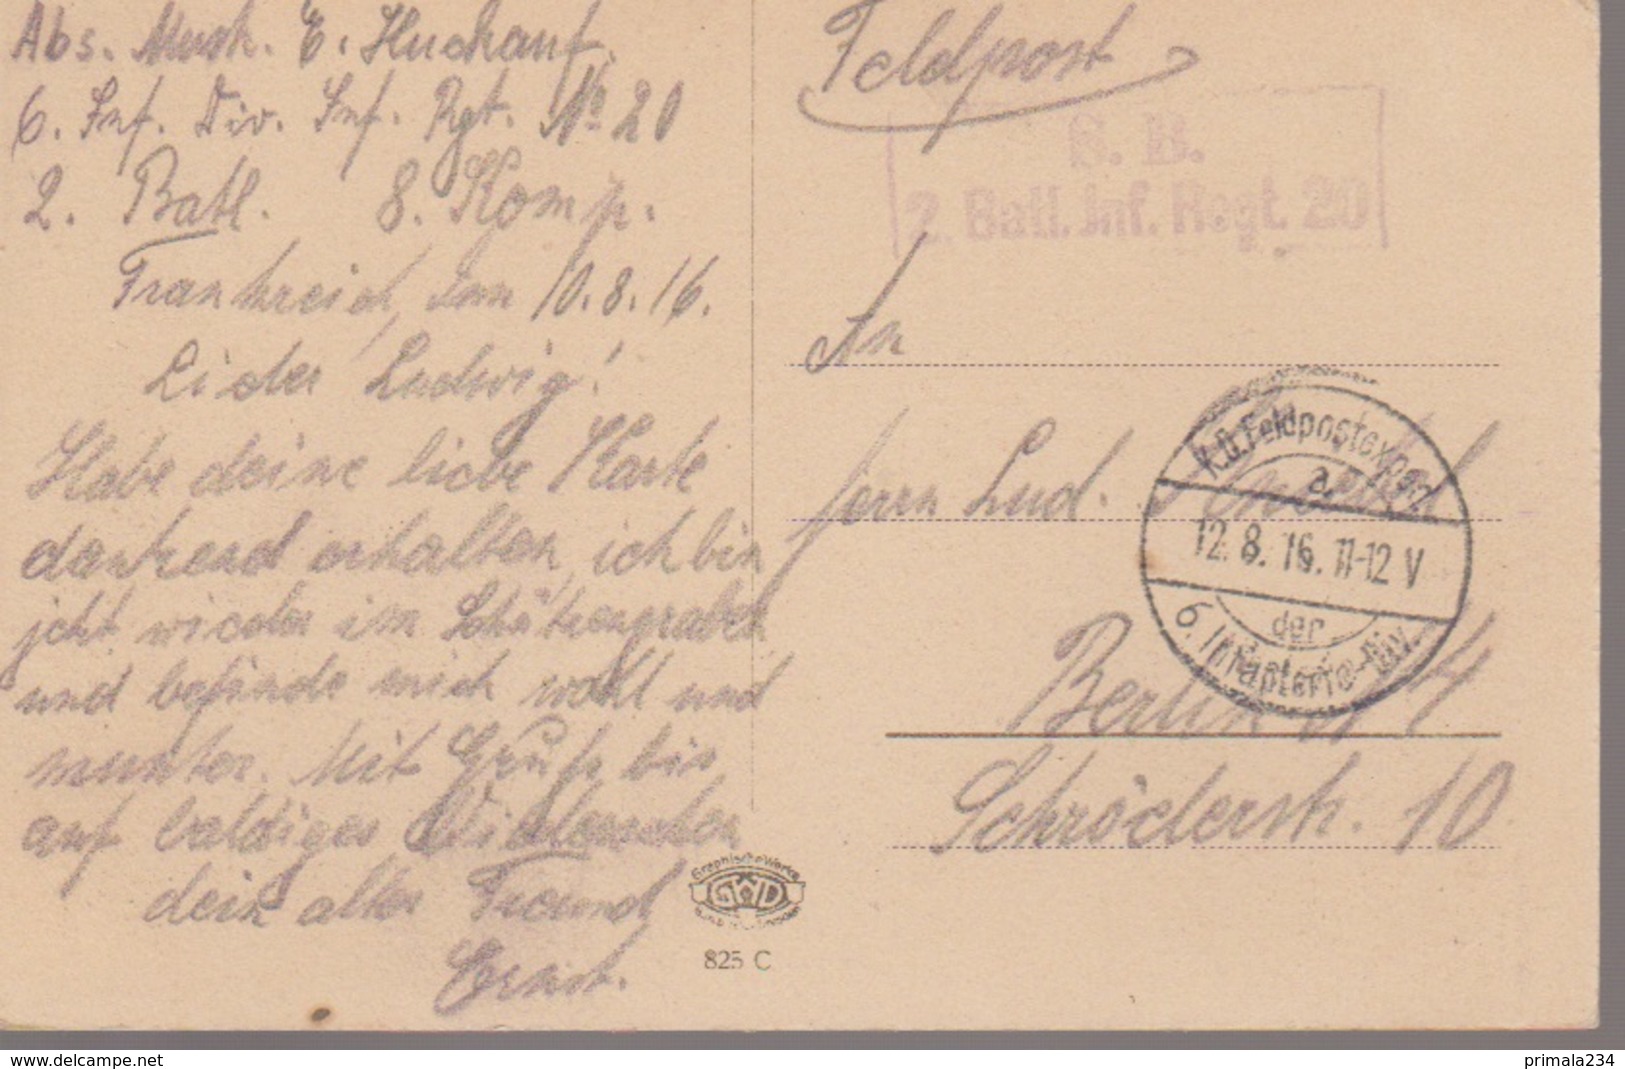 Abs. Musk. E. Huckauf.
6. Inf. Div. Inf. Rgt. No 20
2. Batl. 8. Komp.
Frankreich, den 10.8.16.
Lieder Ludwig!
Habe deine liebe Karte
dankend erhalten, ich bin
jetzt wieder im Schützengraben
und befinde mich wohl und
munter. Mit Gruß bis
auf baldiges Wiedersehen
dein alter Freund
Ernst.
Feldpost
S. B.
2. Batl. Inf. Regt. 20
An
Herrn Lud.
Berlin N 4
Schröderstr. 10
K.D. Feldpostexped.
a.
12. 8. 16. 11-12 V
der
6. Infanterie-Div.
Graphische Werke
GWD
825 C
delcampe.net
primala234